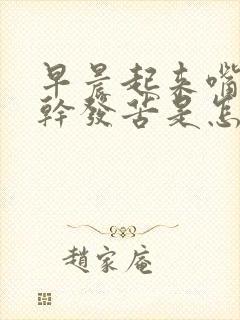 早晨起来嘴
幹發苦是怎
趙家庵